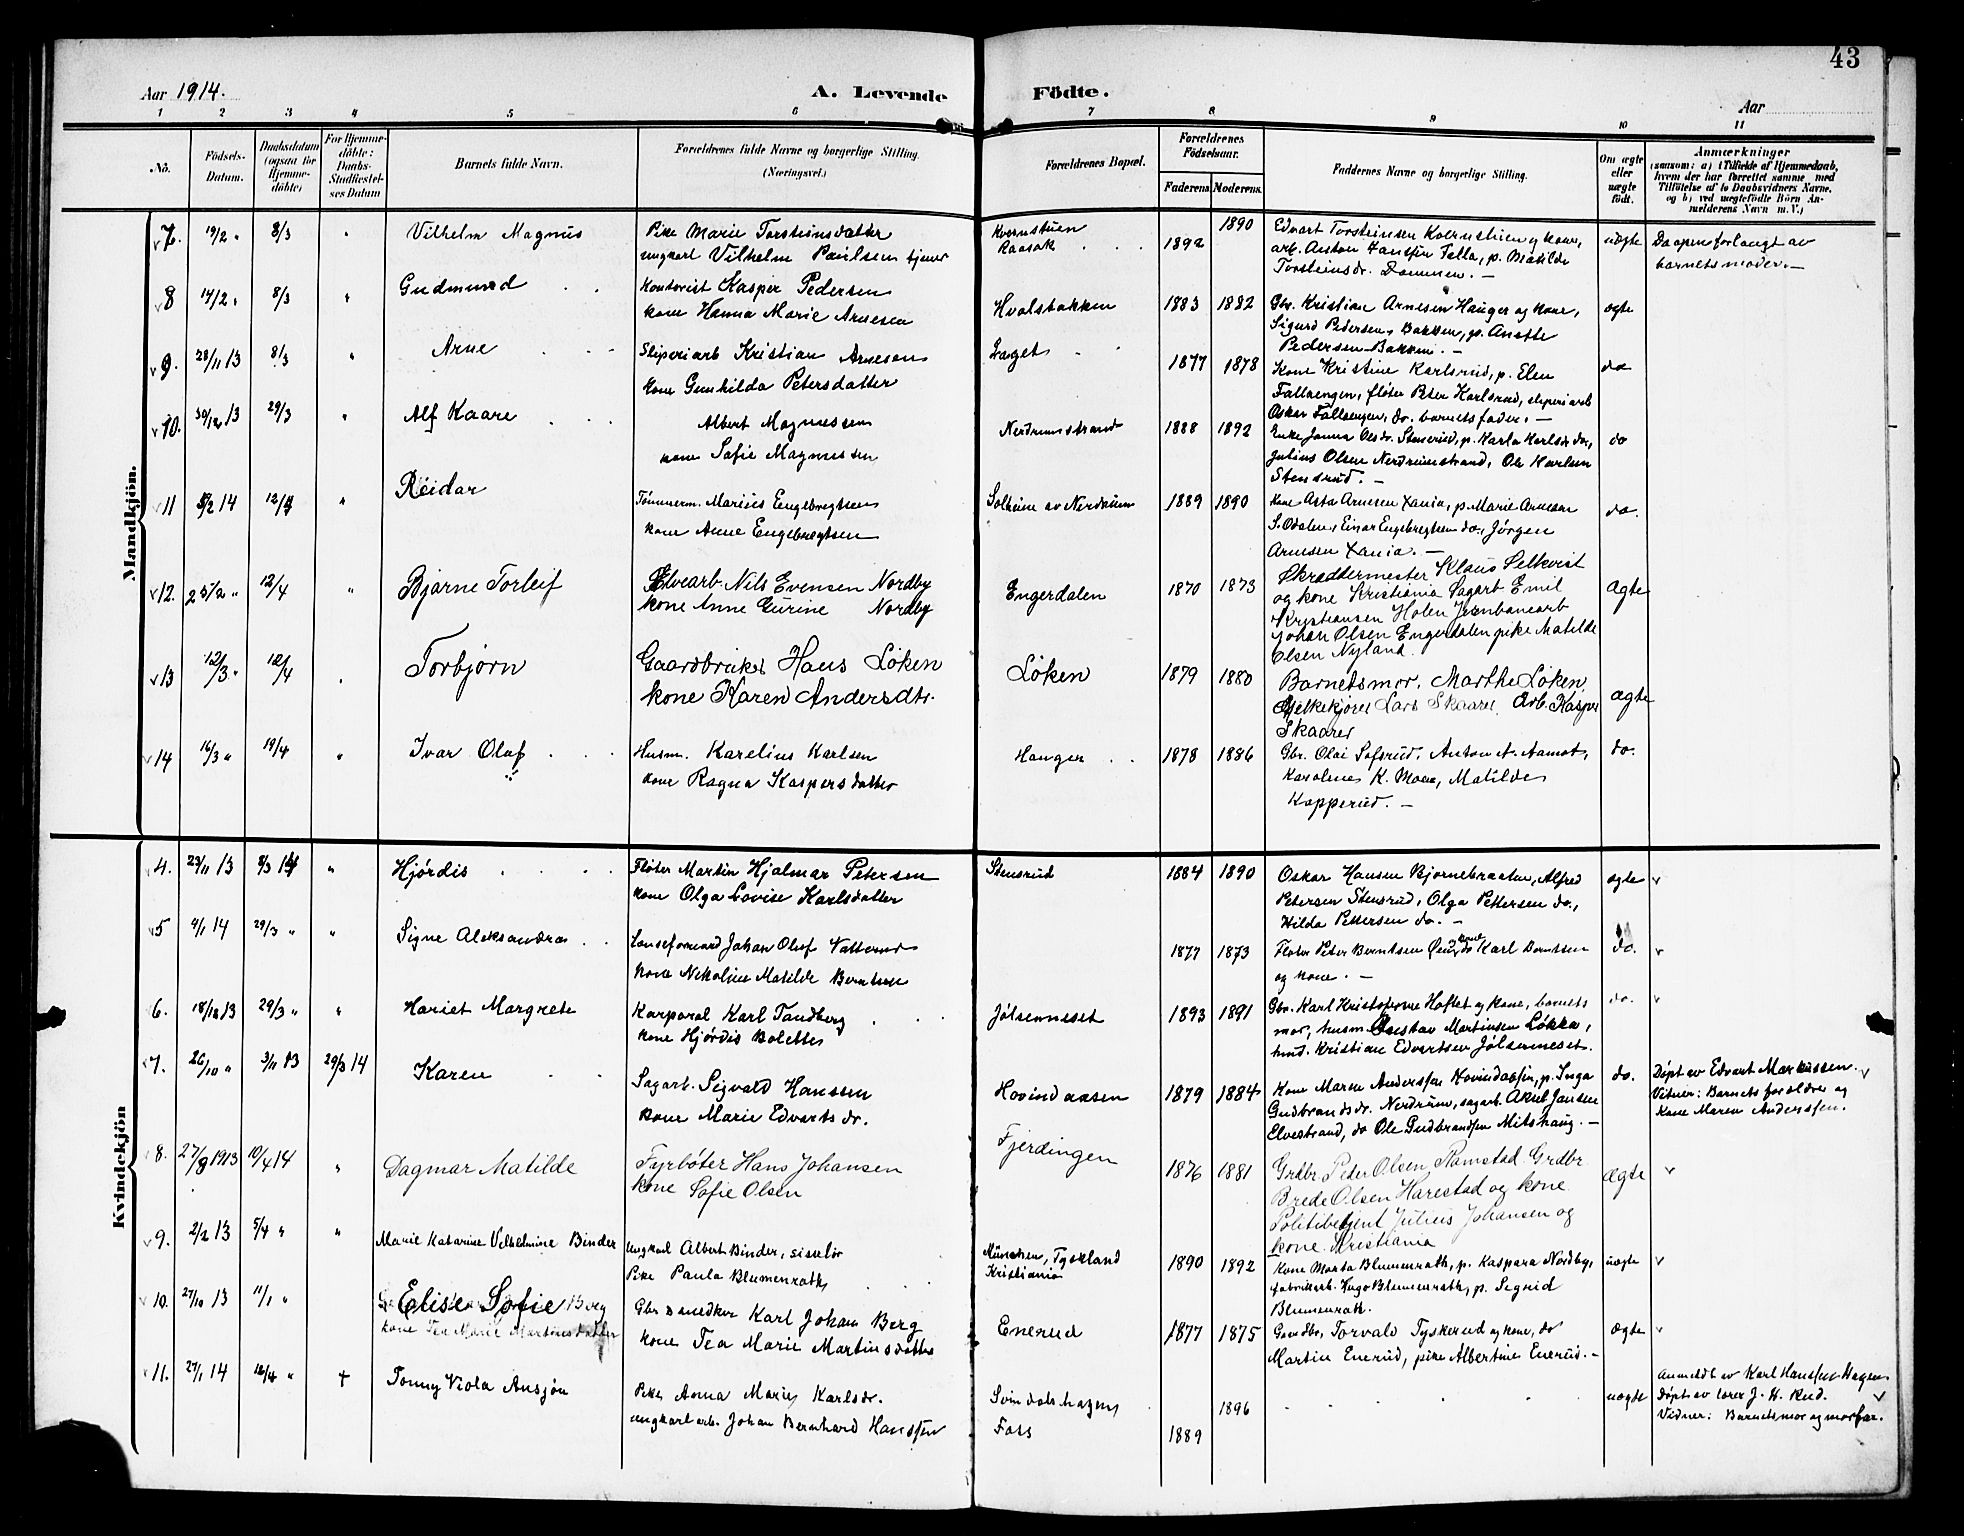 43
Aar 1914.
A. Levende Födte.
Aar
1 2 3 4 5 6 7 8 9 10 11
No.
Födsels-Datum.
Daabsdatum (ogsaa for Hjemme-döbte)
For Hjemme-döbte: Daabs-Stadfæstel-ses Datum
Barnets fulde Navn.
Forældrenes fulde Navne og borgerlige Stilling. (Næringsvei.)
Forældrenes Bopæl.
Forældrenes Födselsaar.
Faderens Moderens.
Faddernes Navne og borgerlige Stilling.
Om ægte eller uægte födt.
Anmærkninger
(saasom: a) i Tilfælde af Hjemmedaab,
hvem der har forrettet samme med
Tilföielse af to Daabsvidners Navne,
og b) ved uægtefödte Börn An-
melderens Navn m. V.)
Mandkjön.
7. 19/2 " 8/3 " Vilhelm Magnus
Pike Marie Torsteinsdatter
ungkarl Vilhelm Paulsen tjener
Kvernstuen
Raasok
1892 1890
Edvart Torsteinsen Kvernstuen og kone,
arb. Anton Hanssen Falla, p. Matilde
Torsteinsdr. Dammen. —
uægte
Daapen forlangt av
barnets moder. —
8 14/2 " 8/3 " Gudmund
Kontorist Kasper Pedersen
kone Hanna Marie Arnesen
Hvalsbakken 1883 1882
Gbr. Kristian Arnesen Hauger og kone,
Sigurd Pedersen, Bakken, p. Anette
Pedersen Bakken. —
ægte
9. 28/11 13 8/3 " Arne
Sliperiarb Kristian Arnesen
kone Gunhilda Petersdatter
Laget 1877 1878
Kone Kristine Karlsrud, p. Elen
Fallaengen, fløter Peter Karlsrud, sliperiarb
Oskar Fallaengen, do. barnets fader. —
do
10. 30/12 13 29/3 " Alf Kaare
Albert Magnussen
kone Sofie Magnussen
Nerdrumstrand 1888 1892
Enke Janna Olsdr. Stensrud, p. Karla Karlsdr do,
Julius Olsen Nerdrumstrand, Ole Karlsen
Stensrud. —
do
11 8/2 14 12/4 " Reidar
Tømmerm. Marius Engebregtsen
kone Anne Engebregtsen
Solheim av Nerdrum 1889 1890
Kone Asta Arnesen Xania, p. Marie Arnesen
S. Odalen, Einar Engebregtsen do., Jørgen
Arnesen Xania. —
do.
12. 25/2 " 12/4 " Bjarne Torleif
Elvearb. Nils Evensen Nordby
kone Anne Gurine Nordby
Engerdalen 1870 1873
Skræddermester Klaus Selkvist
og kone Kristiania Sagarb Emil
Kristiansen Holen Jernbanearb
Johan Olsen Engerdalen pike Matilde
Olsen Nyland.
Ægte
13 12/3 " 12/4 . Torbjørn
Gaardbruker Hans Løken
kone Karen Andersdtr.
Løken 1879 1880
Barnets mor, Marthe Løken
Melkekjører Lars Skaarer. Arb. Kasper
Skaarer
ægte
14 16/3 " 19/4 " Ivar Olaf
Husm. Karelius Karlsen
kone Ragna Kaspersdatter
Hauger 1878 1886
Gbr. Olai Sofsrud, Anton A. Aamot,
Karoline K. Moen, Matilde
Kopperud. —
do.
Kvindekjön
4. 23/11 13 8/3 14 " Hjørdis
Fløter Martin Hjalmar Petersen
kone Olga Lovise Karlsdatter
Stensrud 1884 1890
Oskar Hansen Bjørnebraaten, Alfred
Petersen Stensrud, Olga Pettersen do.,
Hilda Pettersen do. —
ægte
5 4/1 14 29/3 " " Signe Aleksandra
Lenseformand Johan Oluf
kone Nikoline Matilde Berntsen
1877 1873
Fløter Peter Berntsen Øien, do Karl Berntsen
og kone. —
do.
6. 18/12 13 29/3 " " Hariet Margrete
Korporal Karl Tandberg
kone Hjørdis Bolette
Jølsenneset 1893 1891
Gbr. Karl Kristofferne Haftet og kone, barnets
mor, husm Gustav Martinsen Løkka,
hmd. Kristian Edvartsen Jølsenneset.
do.
7. 26/10 " 3/11 13 29/3 14 Karen
Sagarb. Sigvald Hanssen
kone Marie Edvartsdr.
Hovindaasen 1879 1884
Kone Maren Anderssen Hovindaasen, p. Inga
Gudbrandsdr. Nerdrum, sagarb. Aksel Jansen
Elvestrand, do Ole Gudbrandsen Mitshaug. —
do.
Døpt av Edvart Markussen.
Vitner: Barnets forældre og
Kone Maren Anderssen.
8. 27/8 1913 10/4 14 " Dagmar Matilde
Fyrbøter Hans Johansen
kone Sofie Olsen
Fjerdingen 1876 1881
Grdbr. Peter Olsen Ramstad Grdbr
Brede Olsen Harestad og kone
Politibetjent Julius Johansen og
kone Kristiania
Ægte
9. 2/2 13 5/4 " " Marie Katarine Vilhelmine Binder
Ungkarl Albert Binder, siselør
Pike Paula Blumenrath
München, Tyskland
Kristiania
1890 1892
Kone Marta Blumenrath, p. Kaspara Nordby,
fabrikarb. Hugo Blumenrath, p. Sigrid
Blumenrath.
uægte
10. 27/10 13 11/1 " Elise Sofie Berg
kone Tea Marie Martinsdatter
Gbr snedker Karl Johan Berg
kone Tea Marie Martinsdatter
Enerud 1877 1875
Gaardbr. Torvald Tyskerud og kone, do
Martin Enerud, pike Albertine Enerud. —
Ægte
11. 27/1 14 12/4 " † Tonny Viola Ansjøn
Pike Anna Marie Karlsdr.
ungkarl arb. Johan Bernhard Hanssen
Svindalshagen
Foss
1889 1896
uægte
Anmeldt av Karl Hanssen Hagen
Døpt av lærer J. H. Rud.
Vidner: Barnets mor og morfar.